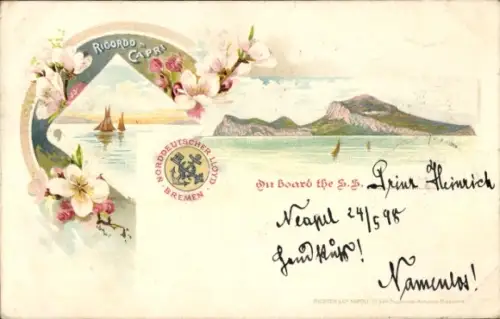 RICORDO DI
CAPRI
NORDDEUTSCHER LLOYD
BREMEN
On board the S.S. Prinz Heinrich
Neapel 24/5 98
Handkuß!
Namenlos!